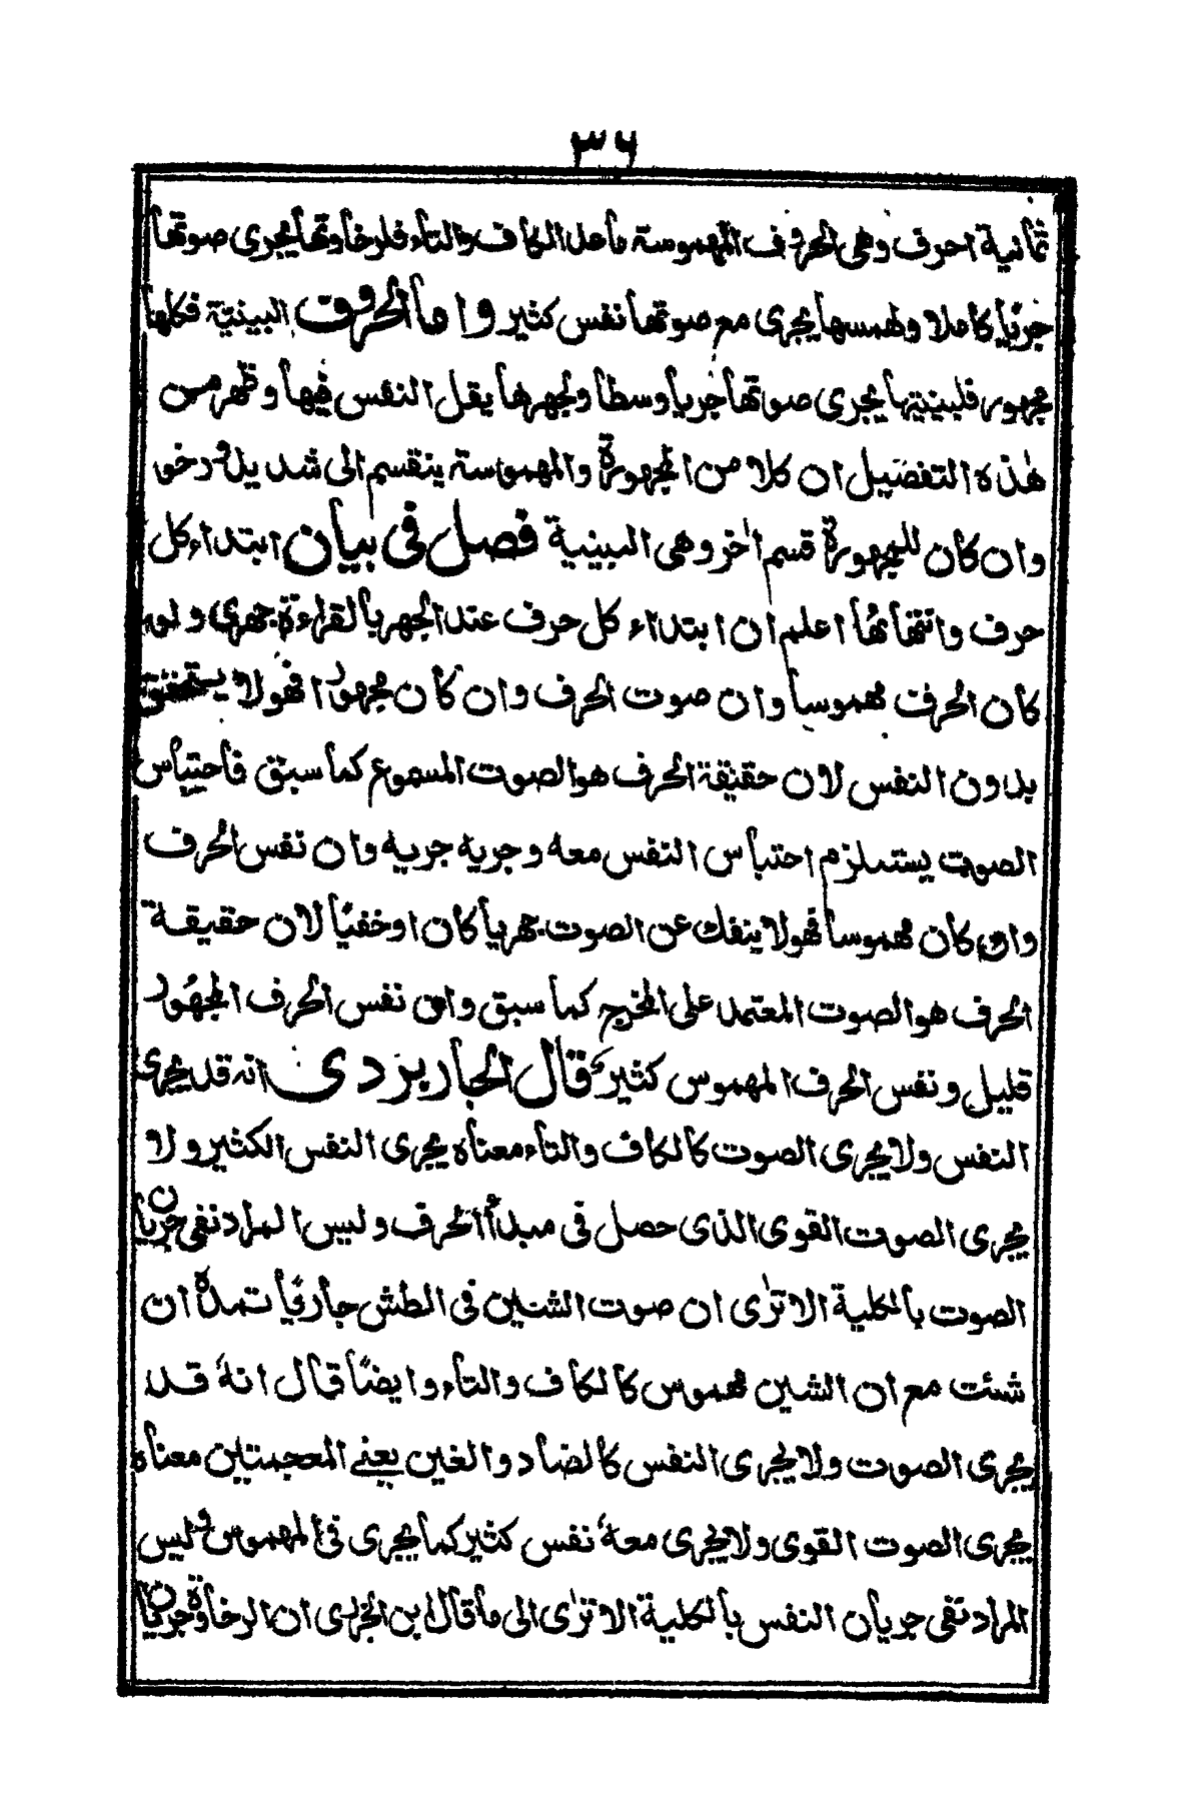 ٣٦
ثمانية احرف وهى الحروف المهموسة ماعدا الكاف والتاء فلرخاوتها يجرى صوتها
جريا كاملا ولهمسها يجرى مع صوتها نفس كثير واما الحروف البينية فكلها
مجهورة فلبينيتها يجرى صوتها جريا وسطا ولجهرها يقل النفس فيها وظهر من
هٰذه التفصيل ان كلا من المجهورة والمهموسة ينقسم الى شديد ورخو
وان كان للمجهورة قسم اٰخر وهى البينية فصل فى بيان ابتداء كل
حرف وانتهائها اعلم ان ابتداء كل حرف عند الجهر بالقراءة جهرى ولو
كان الحرف مهموسا وان صوت الحرف وان كان مجهورا فهو لا يتحقق
بدون النفس لان حقيقة الحرف هو الصوت المسموع كما سبق فاحتباس
الصوت يستلزم احتباس النفس معه وجريه جريه وان نفس الحرف
وان كان مهموسا فهو لا ينفك عن الصوت جهريا كان او خفيا لان حقيقة
الحرف هو الصوت المعتمد على المخرج كما سبق وان نفس الحرف المجهور
قليل ونفس الحرف المهموس كثير قال الجاربردى انه قد يجرى
النفس ولا يجرى الصوت كالكاف والتاء معناه يجرى النفس الكثير ولا
يجرى الصوت القوى الذى حصل فى مبدأ الحرف وليس المراد نفى جريان
الصوت بالكلية الا ترٰى ان صوت الشين فى الطش جاريا تمده ان
شئت مع ان الشين مهموس كالكاف والتاء وايضا قال انه قد
يجرى الصوت ولا يجرى النفس كالضاد والغين يعنے المعجمتين معناه
يجرى الصوت القوى ولا يجرى معه نفس كثير كما يجرى فى المهموس وليس
المراد نفى جريان النفس بالكلية الا ترٰى الى ما قال ابن الجزرى ان الرخاوة جريان